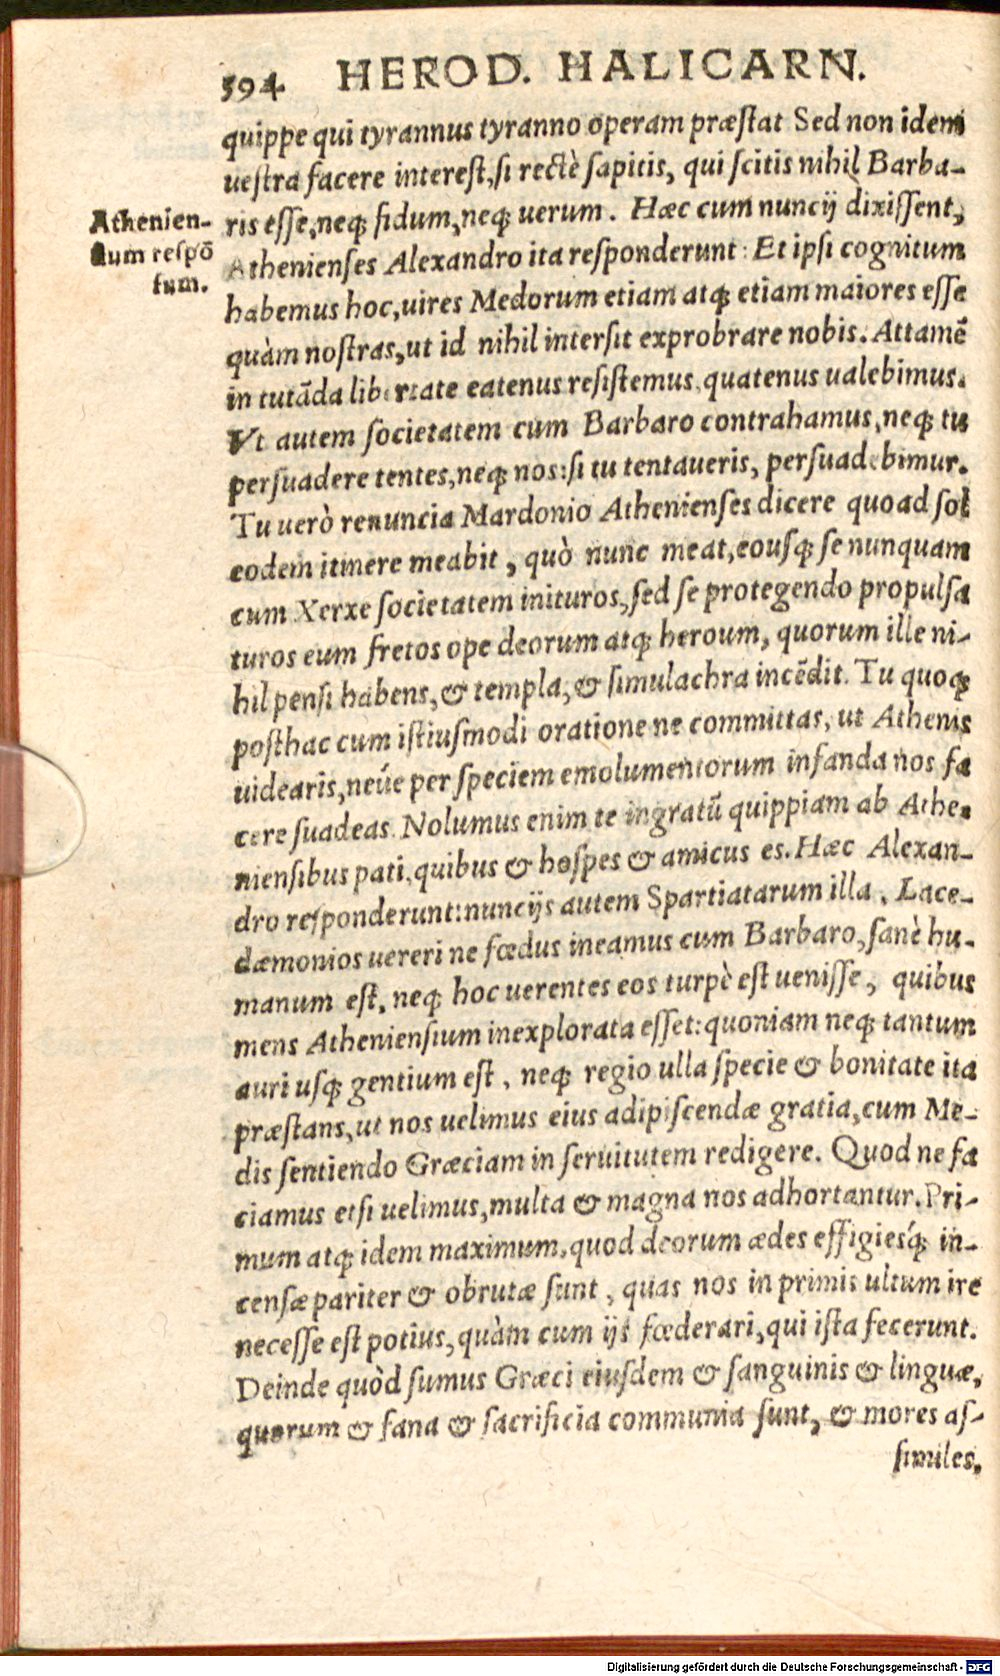 594 HEROD. HALICARN.
quippe qui tyrannus tyranno operam præstat Sed non idem
uestra facere interest, si rectè sapitis, qui scitis nihil Barba-
ris esse, neqꝫ fidum, neqꝫ uerum. Hæc cum nuncij dixissent,
Athenien-
sium respõ
sum.
Athenienses Alexandro ita responderunt: Et ipsi cognitum
habemus hoc, uires Medorum etiam atqꝫ etiam maiores esse
quàm nostras, ut id nihil intersit exprobrare nobis. Attamẽ
in tutãda libertate eatenus resistemus, quatenus ualebimus.
Vt autem societatem cum Barbaro contrahamus, neqꝫ tu
persuadere tentes, neqꝫ nos: si tu tentaueris, persuadebimur.
Tu uerò renuncia Mardonio Athenienses dicere quoad sol
eodem itinere meabit, quò nunc meat, eousqꝫ se nunquam
cum Xerxe societatem inituros, sed se protegendo propulsa
turos eum fretos ope deorum atqꝫ heroum, quorum ille ni-
hil pensi habens, & templa, & simulachra incẽdit. Tu quoqꝫ
posthac cum istiusmodi oratione ne committas, ut Athenis
uidearis, neúe per speciem emolumentorum infanda nos fa
cere suadeas. Nolumus enim te ingratũ quippiam ab Athe-
niensibus pati, quibus & hospes & amicus es. Hæc Alexan-
dro responderunt: nuncijs autem Spartiatarum illa. Lace-
dæmonios uereri ne fœdus ineamus cum Barbaro, sanè hu-
manum est, neqꝫ hoc uerentes eos turpè est uenisse, quibus
mens Atheniensium inexplorata esset: quoniam neqꝫ tantum
auri usqꝫ gentium est, neqꝫ regio ulla specie & bonitate ita
præstans, ut nos uelimus eius adipiscendæ gratia, cum Me-
dis sentiendo Græciam in seruitutem redigere. Quod ne fa
ciamus etsi uelimus, multa & magna nos adhortantur. Pri-
mum atqꝫ idem maximum, quod deorum ædes effigiesq́ꝫ in-
censæ pariter & obrutæ sunt, quas nos in primis ultum ire
necesse est potius, quàm cum ijs fœderari, qui ista fecerunt.
Deinde quòd sumus Græci eiusdem & sanguinis & linguæ,
quorum & fana & sacrificia communia sunt, & mores as-
similes.
Digitalisierung gefördert durch die Deutsche Forschungsgemeinschaft - DFG